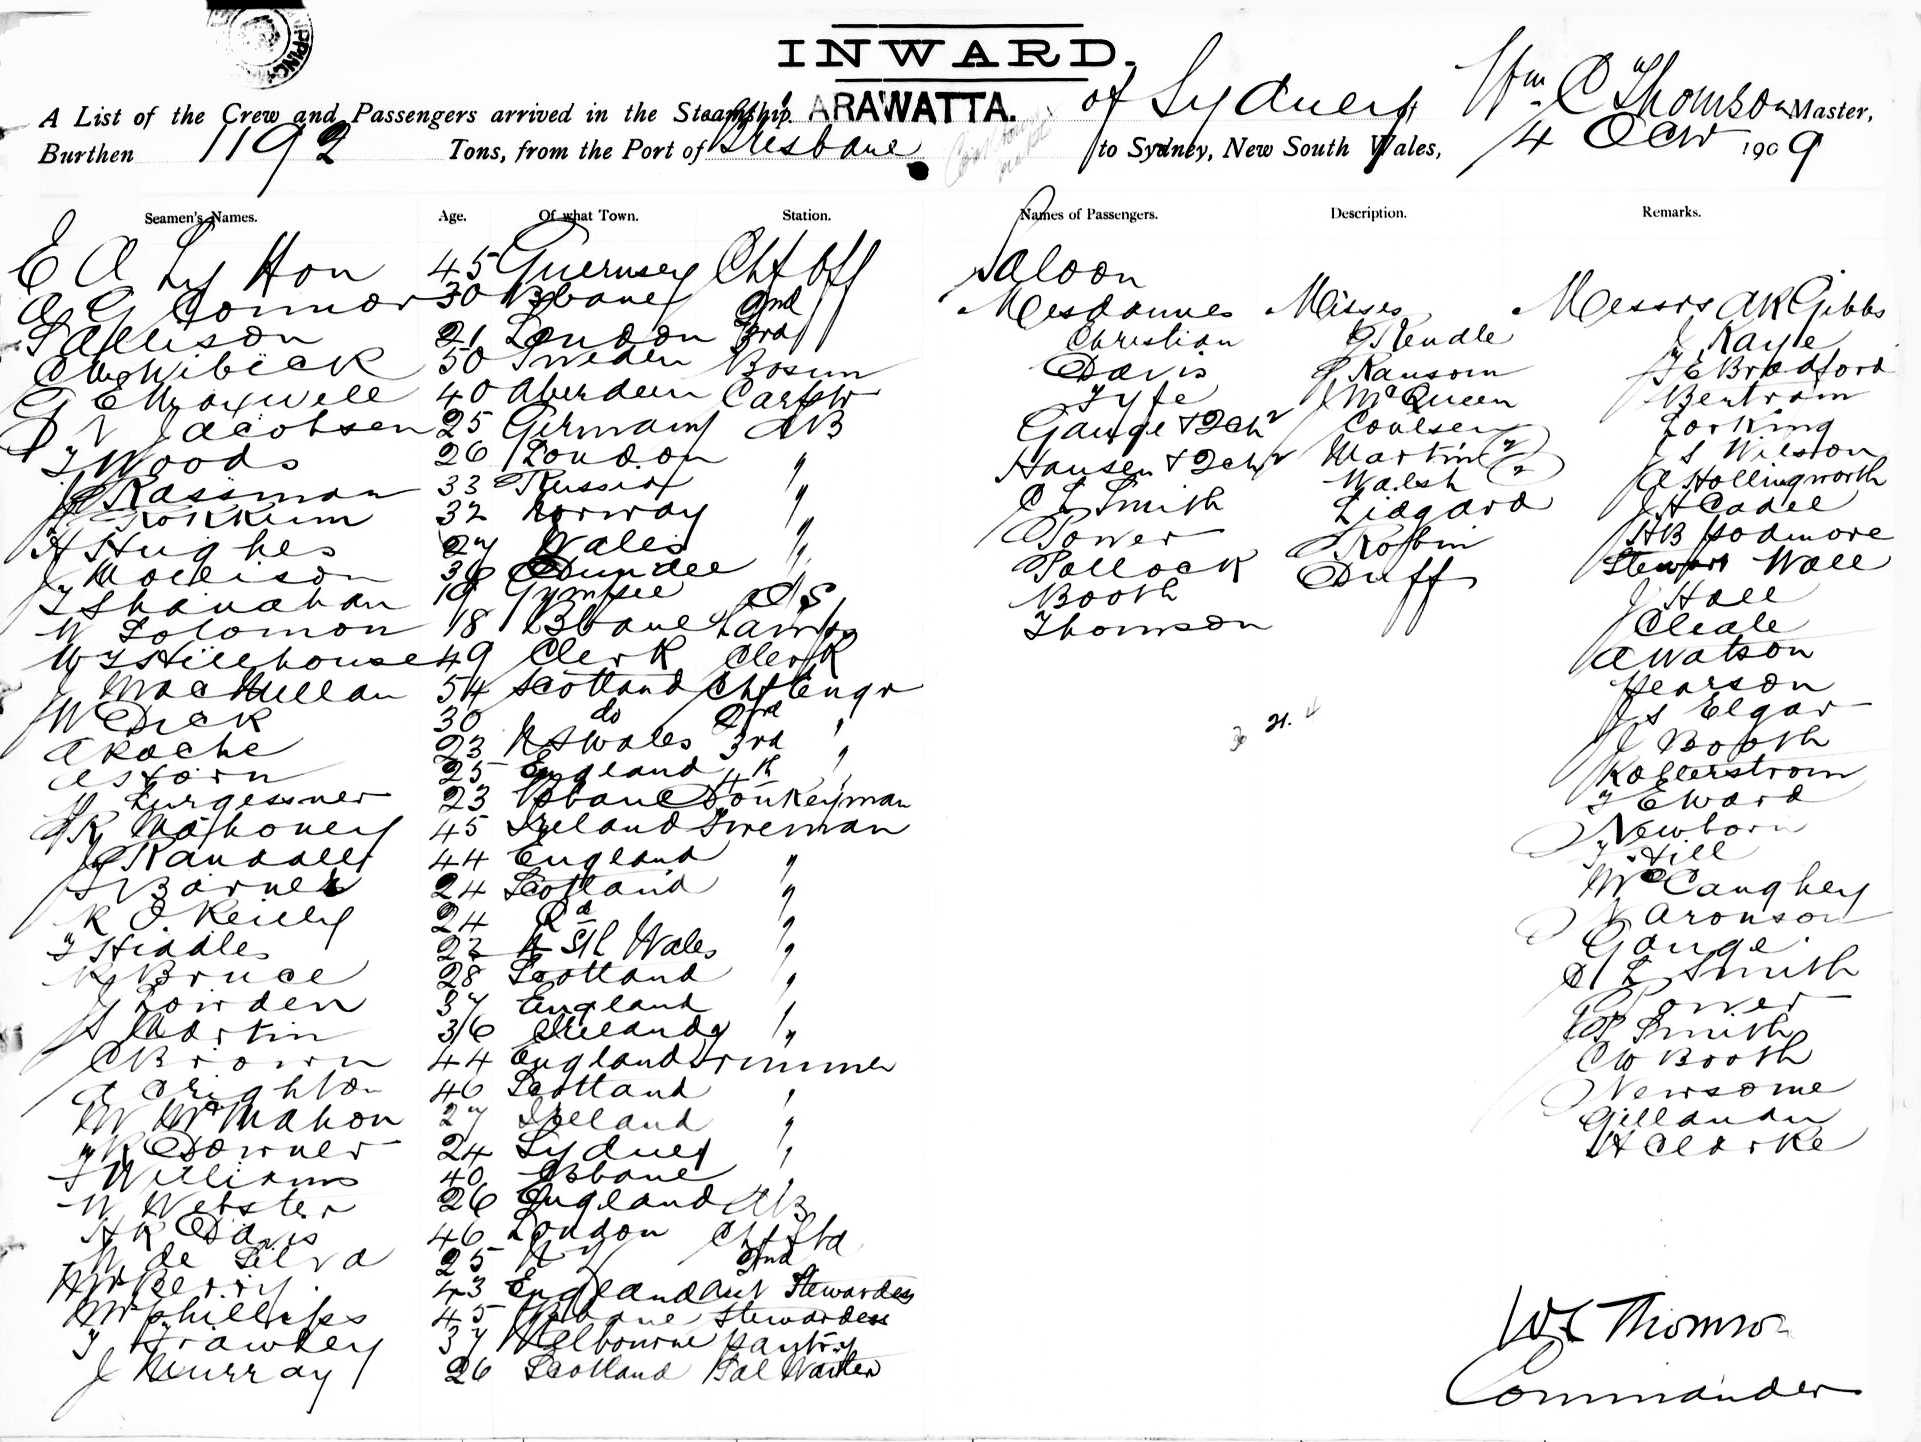 INWARD.
A List of the Crew and Passengers arrived in the Steamship ARAWATTA. of Sydney Wm C Thomson Master,
Burthen 1192 Tons, from the Port of Brisbane to Sydney, New South Wales, 4 Oct 1909
Seamen's Names. Age. Of what Town. Station. Names of Passengers. Description. Remarks.
45 Guernsey Chf Off
A G Connor 30 Bbane 2nd
S Allison 21 London 3rd
50 Sweden Bosun
G E Maxwell 40 Aberdeen
Jacobsen 25 Germany AB
T Woods 26 London "
J Rassman 33 Russia "
32 Norway "
H Hughes 27 Wales "
J Mollison Dundee "
T Shanahan Gympie OS
W Solomon 18 Bbane Lamps
W T Hillhouse 49 Clerk Clerk
J MacMullan 54 Scotland Chf Engr
W Dick 30 do 2nd "
A Roche 23 N S Wales 3rd "
25 England 4th "
23 Bbane Donkeyman
Mahoney 45 Ireland Fireman
J Randall 44 England "
S Barnes 24 Scotland "
R O'Reilly 24 Do "
T Hiddle 22 N Sth Wales "
R Bruce 28 Scotland "
J Lowden 37 England "
S Martin 36 Ireland "
C Brown 44 England Trimmer
A Crighton 40 Scotland "
M McMahon 27 Ireland "
Downer 24 Sydney "
T Williams 40 Bbane "
W Webster 26 England AB
H R Davis 46 London Chf Std
de Silva 25 2nd
Berry 43 England Stewardess
Phillips 45 Bbane Stewardess
T Frawley 37 Melbourne Pantry
J Murray 26 Scotland Sal Waiter
Saloon
Mesdames Misses Messrs A K Gibbs
Christian Rendle J Kaye
Davis Ransom T E Bradford
Fyfe McQueen Bertram
Gauge & 2 ch Coulsen Zorking
Hansen & 2 ch Martin (2) J S Wilson
C L Smith Walsh A Hollingworth
Power Lidgard J H Cadell
Pollock Robin H B Hodmore
Booth Duff Stewart Wall
Thomson J Hall
J Cleale
A Watson
Pearson
J S Elgar
J Booth
Kallerstrom
T E Ward
Newborn
T Hill
McCaughey
Aronson
Gauge
C L Smith
Power
Smith
C W Booth
Newsome
Gillanan
H Clarke
W C Thomson
Commander